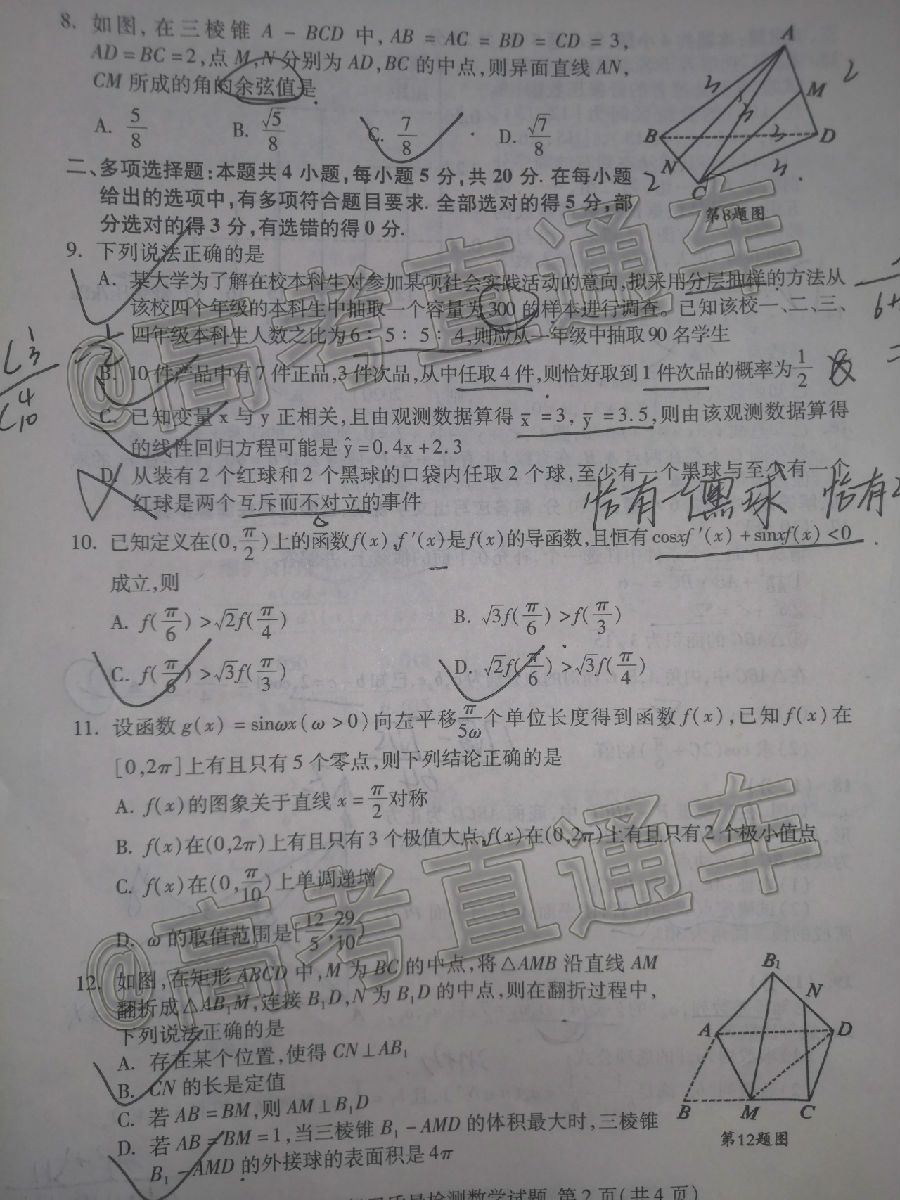 8. 如图,在三棱锥 A-BCD 中,AB=AC=BD=CD=3,
AD=BC=2,点 M,N 分别为 AD,BC 的中点,则异面直线 AN,
CM 所成的角的余弦值是
A. 5/8 B. √5/8 C. 7/8 D. √7/8
A
M
B
D
N
C
2
2
第8题图
二、多项选择题:本题共 4 小题,每小题 5 分,共 20 分. 在每小题
给出的选项中,有多项符合题目要求. 全部选对的得 5 分,部
分选对的得 3 分,有选错的得 0 分.
9. 下列说法正确的是
A. 某大学为了解在校本科生对参加某项社会实践活动的意向,拟采用分层抽样的方法从
该校四个年级的本科生中抽取一个容量为 300 的样本进行调查。已知该校一、二、三、
四年级本科生人数之比为 6:5:5:4,则应从一年级中抽取 90 名学生
B. 10 件产品中有 7 件正品,3 件次品,从中任取 4 件,则恰好取到 1 件次品的概率为 1/2
C. 已知变量 x 与 y 正相关,且由观测数据算得 x̄=3, ȳ=3.5,则由该观测数据算得
的线性回归方程可能是 ŷ=0.4x+2.3
D. 从装有 2 个红球和 2 个黑球的口袋内任取 2 个球,至少有一个黑球与至少有一个
红球是两个互斥而不对立的事件
恰有一个黑球 恰有2
10. 已知定义在(0,π/2)上的函数f(x),f′(x)是f(x)的导函数,且恒有cosxf′(x)+sinxf(x)<0
成立,则
A. f(π/6)>√2f(π/4) B. √3f(π/6)>f(π/3)
C. f(π/6)>√3f(π/3) D. √2f(π/6)>√3f(π/4)
11. 设函数 g(x)=sinωx(ω>0)向左平移π/5ω个单位长度得到函数 f(x),已知 f(x)在
[0,2π]上有且只有 5 个零点,则下列结论正确的是
A. f(x)的图象关于直线 x=π/2对称
B. f(x)在(0,2π)上有且只有 3 个极值大点,f(x)在(0,2π)上有且只有 2 个极小值点
C. f(x)在(0,π/10)上单调递增
D. ω 的取值范围是[12/5,29/10)
12. 如图,在矩形 ABCD 中,M 为 BC 的中点,将△AMB 沿直线 AM
翻折成△AB₁M,连接 B₁D,N 为 B₁D 的中点,则在翻折过程中,
下列说法正确的是
A. 存在某个位置,使得 CN⊥AB₁
B. CN 的长是定值
C. 若 AB=BM,则 AM⊥B₁D
D. 若 AB=BM=1,当三棱锥 B₁-AMD 的体积最大时,三棱锥
B₁-AMD 的外接球的表面积是 4π
B₁
N
A
D
B
M
C
第12题图
质量检测数学试题 第 2 页(共 4 页)
@高考直通车
@高考直通车